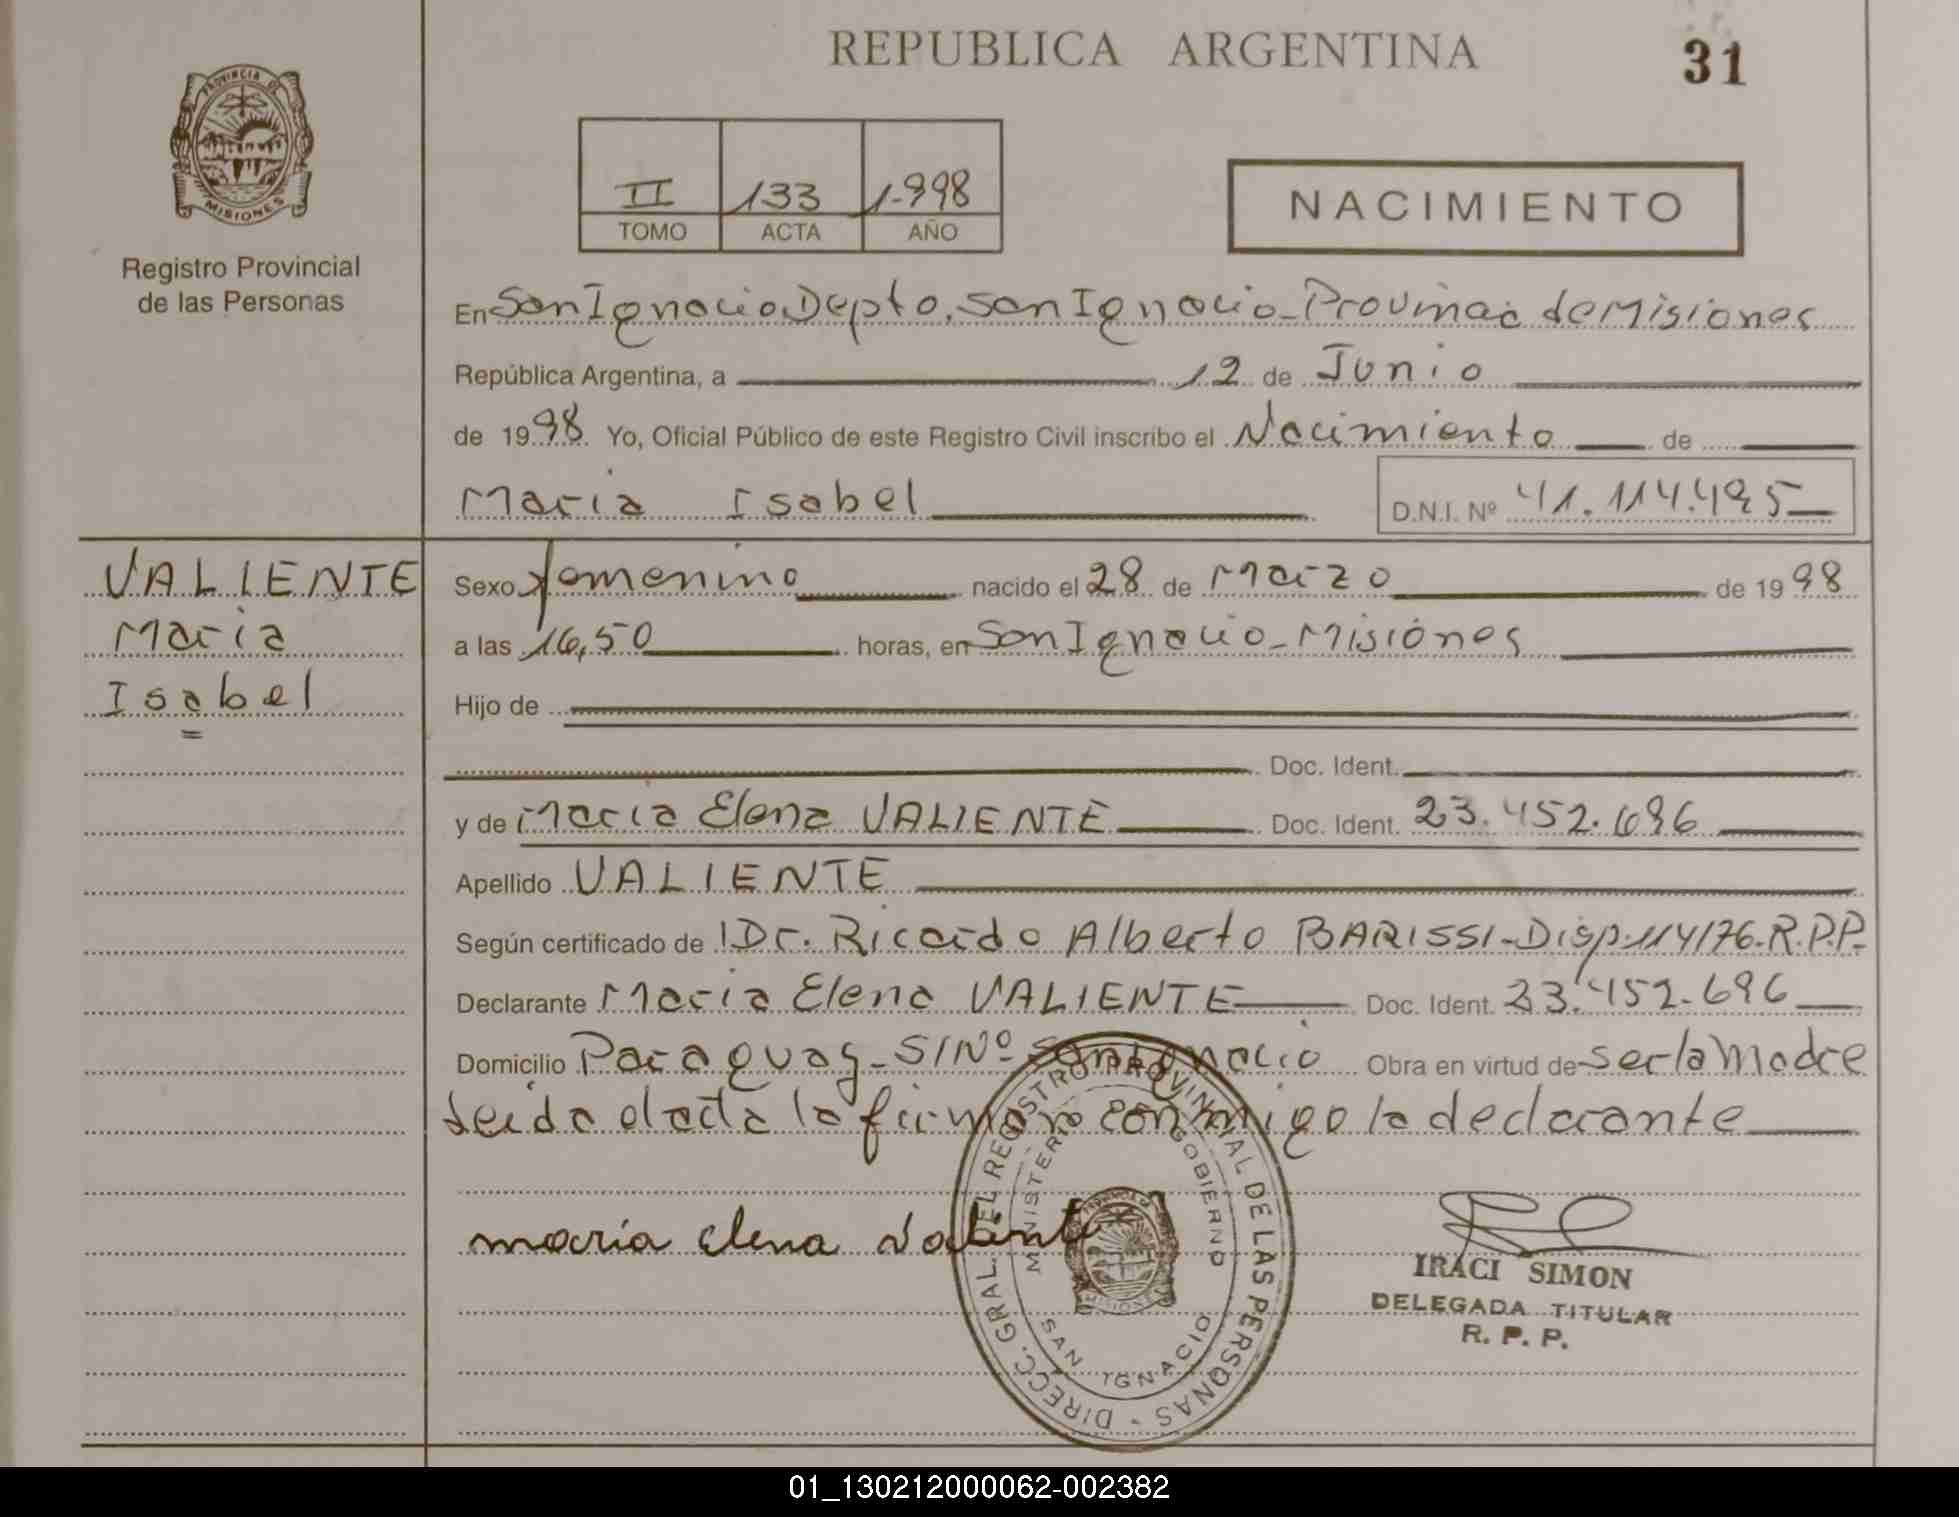 REPUBLICA ARGENTINA
31
PROVINCIA DE
MISIONES
Registro Provincial
de las Personas
II 133 1.998
TOMO ACTA AÑO
NACIMIENTO
En San Ignacio Depto. San Ignacio - Provincia de Misiones
República Argentina, a 12 de Junio
de 1998 Yo, Oficial Público de este Registro Civil inscribo el Nacimiento de
Maria Isabel D.N.I. Nº 41.114.495
VALIENTE
Maria
Isabel
Sexo femenino nacido el 28 de Marzo de 1998
a las 16,50 horas, en San Ignacio - Misiones
Hijo de
Doc. Ident.
y de Maria Elena VALIENTE Doc. Ident. 23.452.696
Apellido VALIENTE
Según certificado de Dr. Ricardo Alberto BARISSI - Disp. 114/76. R.P.P.
Declarante Maria Elena VALIENTE Doc. Ident. 23.452.696
Domicilio Paraguay - S/Nº San Ignacio Obra en virtud de ser la Madre
Leida el acta la firman conmigo la declarante
maría elena Valiente
DIRECC. GRAL. DEL REGISTRO PROVINCIAL DE LAS PERSONAS
MINISTERIO DE GOBIERNO
SAN IGNACIO
IRACI SIMON
DELEGADA TITULAR
R. P. P.
01_130212000062-002382